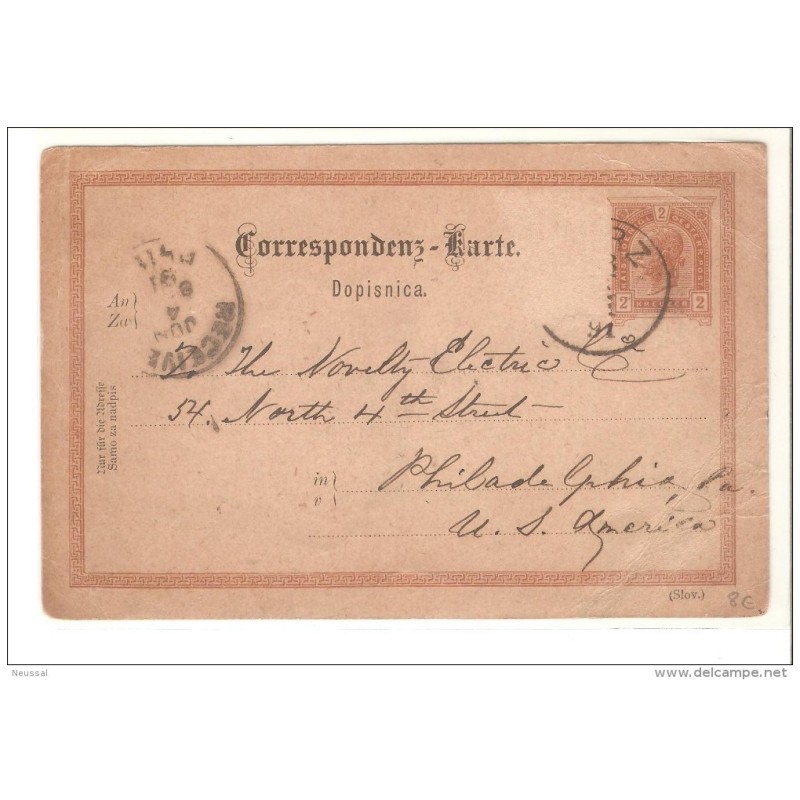 Correspondenz-Karte.
Dopisnica.
2
2 KREUZER 2
RECEIVE
JUN
4
91
An
Za
To The Novelty Electric Co
54. North 4th Street
Nur für die Adresse
Samo za nadpis
in
v
Philadelphia, Pa.
U. S. America
(Slov.)
8€.
Neussal
www.delcampe.net